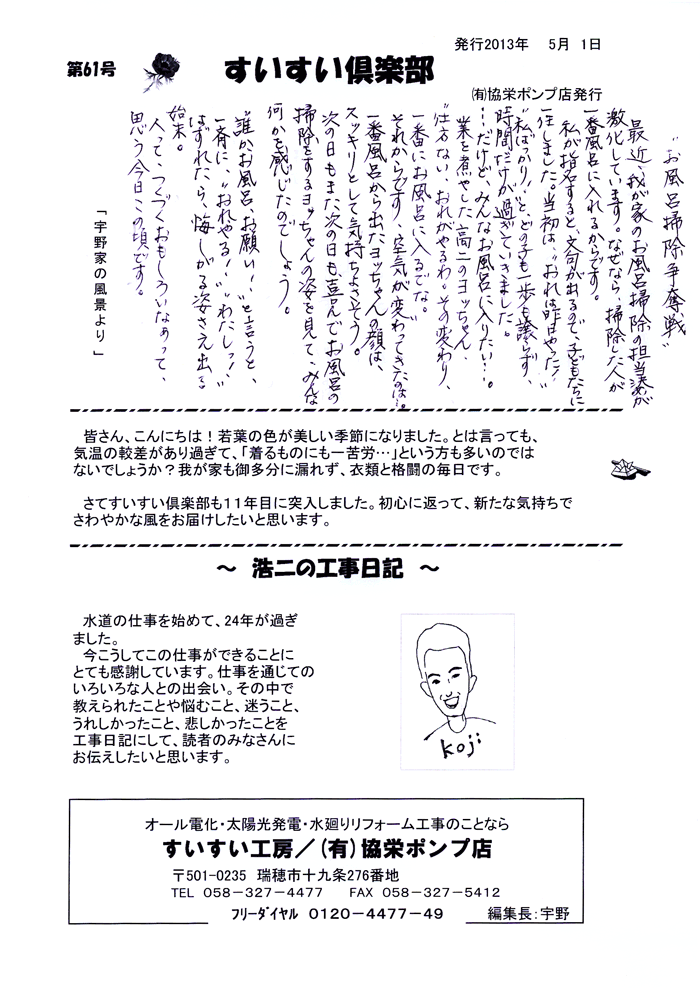 発行2013年　5月 1日
第61号
すいすい倶楽部
㈲協栄ポンプ店発行
“お風呂掃除争奪戦”
最近、我が家のお風呂掃除の担当決めが
激化しています。なぜなら、掃除した人が
一番風呂に入れるからです。
私が指名すると、文句が出るので、子どもたちに
一任しました。当初は、“おれは昨日やった！”
“私ばっかり！”と、どの子も一歩も譲らず、
時間だけが過ぎていきました。
…だけど、みんなお風呂に入りたい…。
業を煮やした高二のヨッちゃん、
“仕方ない、おれがやるわ。その変わり、
一番にお風呂に入るでな。”
それからです、空気が変わってきたのは…。
一番風呂から出たヨッちゃんの顔は、
スッキリとして気持ちよさそう。
次の日もまた次の日も、喜んでお風呂の
掃除をするヨッちゃんの姿を見て、みんな
何かを感じたのでしょう。
“誰かお風呂、お願い！”と言うと、
一斉に、“おれやる！”“わたしっ！”
はずれたら、悔しがる姿さえ出る
始末。
人って、つくづくおもしろいなぁって、
思う今日この頃です。
「宇野家の風景より」
皆さん、こんにちは！若葉の色が美しい季節になりました。とは言っても、
気温の較差があり過ぎて、「着るものにも一苦労…」という方も多いのでは
ないでしょうか？我が家も御多分に漏れず、衣類と格闘の毎日です。
さてすいすい倶楽部も11年目に突入しました。初心に返って、新たな気持ちで
さわやかな風をお届けしたいと思います。
～ 浩二の工事日記 ～
水道の仕事を始めて、24年が過ぎ
ました。
今こうしてこの仕事ができることに
とても感謝しています。仕事を通じての
いろいろな人との出会い。その中で
教えられたことや悩むこと、迷うこと、
うれしかったこと、悲しかったことを
工事日記にして、読者のみなさんに
お伝えしたいと思います。
koji
オール電化・太陽光発電・水廻りリフォーム工事のことなら
すいすい工房／（有）協栄ポンプ店
〒501-0235 瑞穂市十九条276番地
TEL 058－327－4477　FAX 058－327－5412
フリーダイヤル 0120－4477－49
編集長：宇野